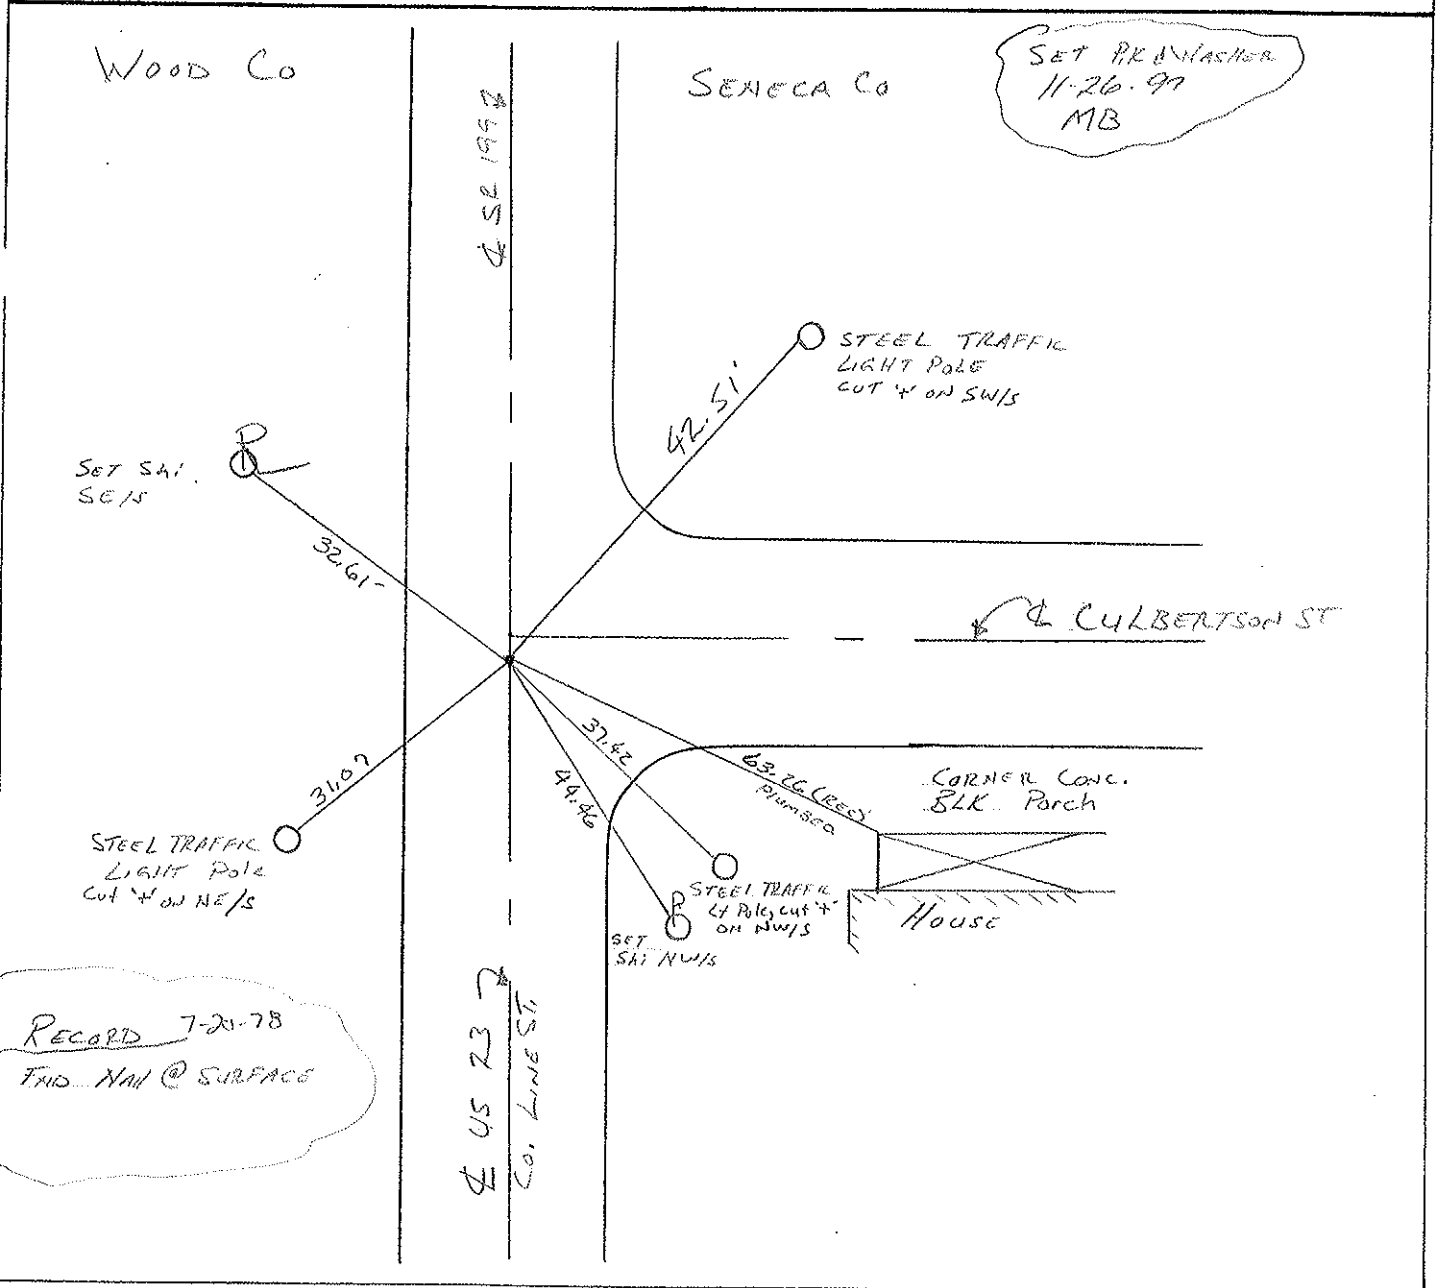 WOOD CO
SENECA CO
SET P.K & WASHER
11-26-97
MB
℄ SR 199
STEEL TRAFFIC
LIGHT POLE
CUT '+' ON SW/S
42.51'
SET Shi.
SE/S
32.61
℄ CULBERTSON ST
31.07
37.42
44.46
63.26 (REC)
PLUMBED
CORNER CONC.
BLK Porch
STEEL TRAFFIC
LIGHT Pole
Cut '+' ON NE/S
STEEL TRAFFIC
Lt Pole, cut '+'
ON NW/S
HOUSE
SET
Shi NW/S
RECORD 7-20-78
FND NAIL @ SURFACE
℄ US 23
CO. LINE ST.